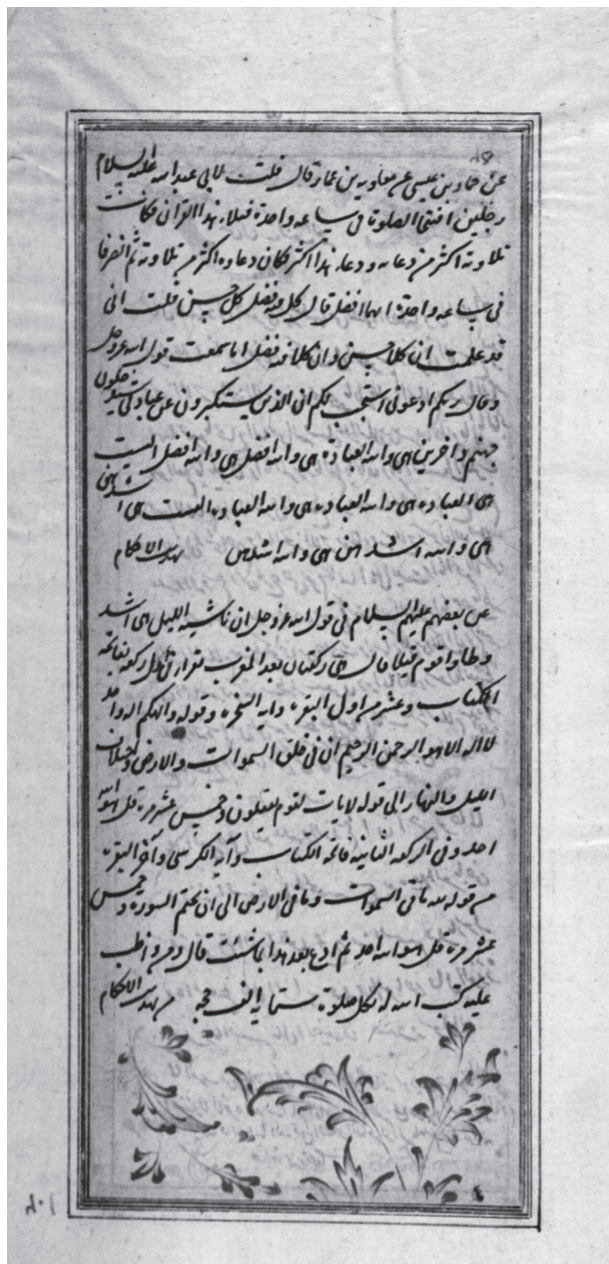 عن حماد بن عيسى عن معاوية بن عمار قال قلت لابي عبد الله عليه السلام
رجلين افتتحا الصلوة فى ساعة واحدة فتلاء هذا القران فكانت
تلاوته اكثر من دعائه ودعاء هذا اكثر فكان دعاوه اكثر من تلاوته ثم انصرفا
فى ساعة واحدة ايهما افضل قال كل فيه فضل كل حسن قلت انى
قد علمت ان كلا حسن وان كلا فيه فضل اما سمعت قول الله عز وجل
وقال ربكم ادعونى استجب لكم ان الذين يستكبرون عن عبادتى سيدخلون
جهنم داخرين هى والله العبادة هى والله افضل هى والله افضل اليست
هى العبادة هى والله العبادة هى والله العبادة اليست هى اشدهن
هى والله اشدهن هى والله اشدهن تهذيب الاحكام
عن بعضهم عليهم السلام فى قول الله عز وجل ان ناشئة الليل هى اشد
وطاء واقوم قيلا قال هى ركعتان بعد المغرب تقراء فى اول ركعة بفاتحة
الكتاب وعشر من اول البقرة واية السخرة وقوله والهكم اله واحد
لا اله الا هو الرحمن الرحيم ان فى خلق السموات والارض واختلاف
الليل والنهار الى قوله لايات لقوم يعقلون وخمس عشر مرة قل هو الله
احد وفى الركعة الثانية فاتحة الكتاب وآية الكرسى وآخر البقرة
من قوله لله ما فى السموات وما فى الارض الى ان تختم السورة وخمس
عشر مرة قل هو الله احد ثم ادع بعد هذا بما شئت قال ومن واظب
عليه كتب الله له بكل صلوة ستمائة الف حجة تهذيب الاحكام